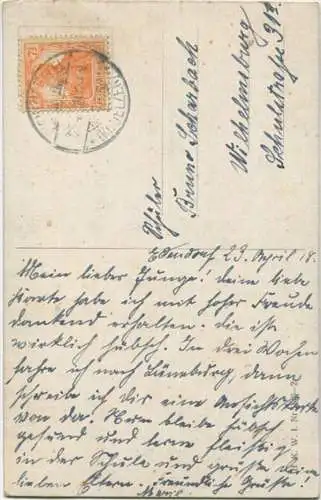 Schüler
Bruno Scharbach
Wilhelmsburg
Schulstraße 91
Ebendorf 23. April 18.
Mein lieber Junge! deine liebe
Karte habe ich mit hoher Freude
dankend erhalten. die ist
wirklich hübsch. In drei Wochen
fahre ich nach Lüneburg, dann
schreibe ich dir eine Ansichtskarte
von da. Nun bleibe hübsch
gesund und lerne fleissig
in der Schule und grüsse deine
lieben Eltern. Freundliche Grüsse!